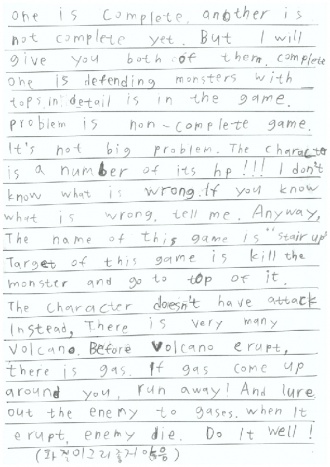 one is complete. another is
not complete yet. But I will
give you both of them. complete
one is defending monsters with
tops. in detail is in the game.
problem is non-complete game.
It's not big problem. The character
is a number of its hp!!! I don't
know what is wrong. If you know
what is wrong, tell me. Anyway,
The name of this game is "stair up"
Target of this game is kill the
monster and go to top of it.
The character doesn't have attack
Instead, There is very many
Volcano. Before Volcano erupt,
there is gas. If gas come up
around you, run away! And lure
out the enemy to gases. when it
erupt, enemy die. Do it well!